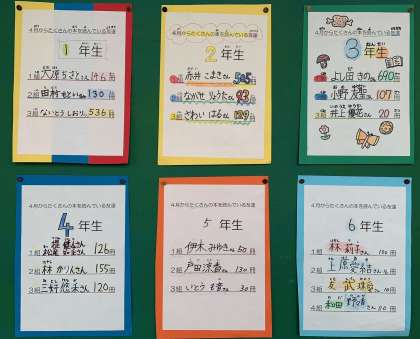 4月からたくさんの本を読んでいる友達
1年生
1組 さん 146冊
2組 さん 130冊
3組 ないとう しおり さん 536冊
4月からたくさんの本を読んでいる友達
2年生
1組 赤井 こまきさん 505冊
2組 ながせ りょうたさん 93冊
3組 さわい はるさん 129冊
4月からたくさんの本を読んでいる友達
3年生
1組 よし田 きのさん 690冊
2組 小野 さん 107冊
3組 井上 優花さん 20冊
4月からたくさんの本を読んでいる友達
4年生
1組 さん 126冊
2組 林 かりんさん 155冊
3組 三好 悠 さん 120冊
4月からたくさんの本を読んでいる友達
5年生
1組 伊木 みゆきさん 50冊
2組 戸田 涼香さん 130冊
3組 いとう さん 30冊
4月からたくさんの本を読んでいる友達
6年生
1組 林 莉子さん 100冊
2組 上原 愛結さん 冊
3組 武 さん 10冊
4組 和田 さん 冊